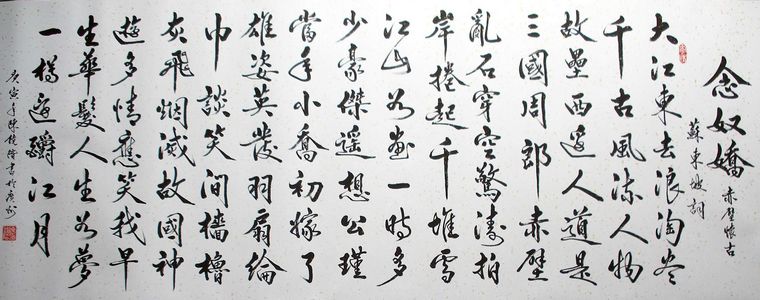 念奴嬌 赤壁懷古
蘇東坡詞
大江東去浪淘盡
千古風流人物
故壘西邊人道是
三國周郎赤壁
亂石穿空驚濤拍
岸捲起千堆雪
江山如畫一時多
少豪傑遙想公瑾
當年小喬初嫁了
雄姿英發羽扇綸
巾談笑間檣櫓
灰飛烟滅故國神
遊多情應笑我早
生華髮人生如夢
一樽還酹江月
庚寅年陳書於廣州